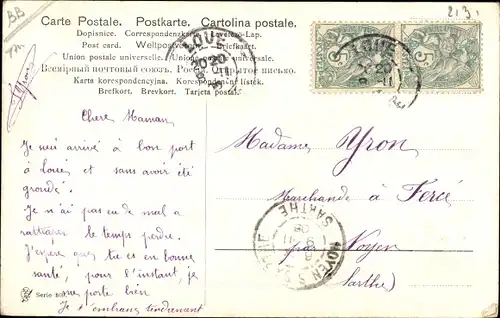 BB
213
Carte Postale. Postkarte. Cartolina postale.
Dopisnice. Correspondenzkarte. Levelező-Lap.
Post card. Weltpostverein. Briefkaart.
Union postale universelle. Unione postale universale.
Всемірный почтовый союзъ. Россія. Открытое письмо.
Karta korespondencyjna. Korespondenční lístek.
Brefkort. Brevkort. Tarjeta postal.
LOUÉ
LOUÉ
Chère Maman
Je suis arrivé à bon port
à Loué et sans avoir été
grondé.
Je n'ai pas eu de mal a
rattraper le temps perdu.
J'espère que tu es en bonne
santé, pour l'instant, je
me porte bien
Je t'embrasse tendrement
Madame Yron
Marchande à Fercé
par Noyen
Sarthe)
NOYEN S SARTHE
SARTHE
Serie